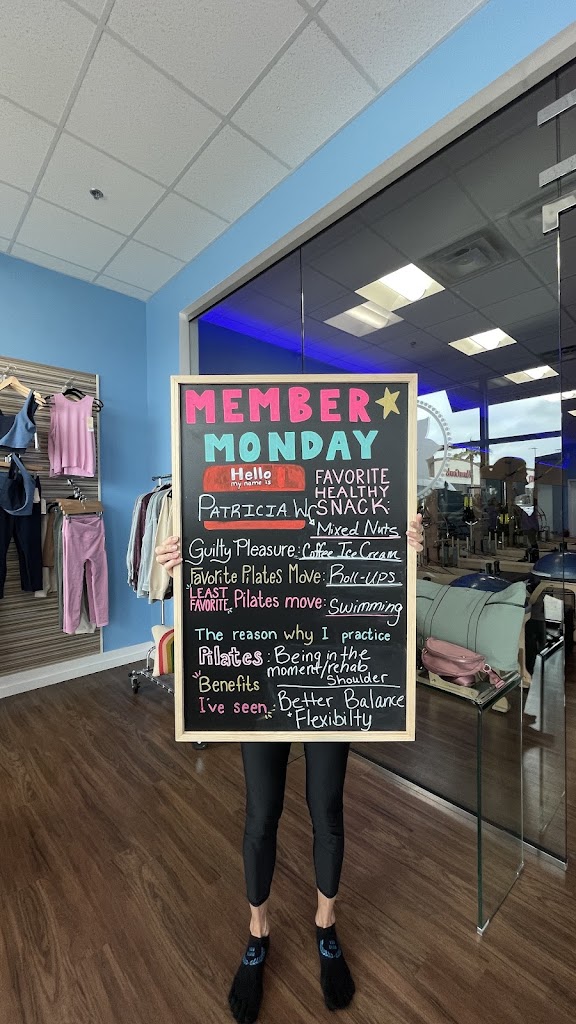 MEMBER
MONDAY
Hello
my name is
PATRICIA W.
FAVORITE
HEALTHY
SNACK:
Mixed Nuts
Guilty Pleasure: Coffee Ice Cream
Favorite Pilates Move: Roll-UPS
LEAST
FAVORITE Pilates move: Swimming
The reason why I practice
Pilates: Being in the
moment/rehab
Shoulder
Benefits
I've seen: Better Balance
+ Flexibilty